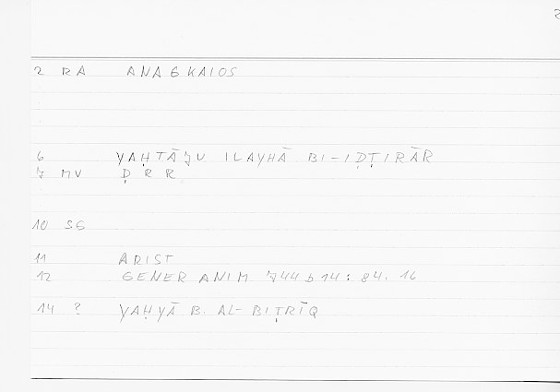 2 RA ANAGKAIOS
6 YAḤTĀJU ILAYHĀ BI-IḌṬIRĀR
7 MV ḌRR
10 SG
11 ARIST
12 GENER ANIM 744b14: 84.16
14 ? YAḤYĀ B. AL-BIṬRĪQ